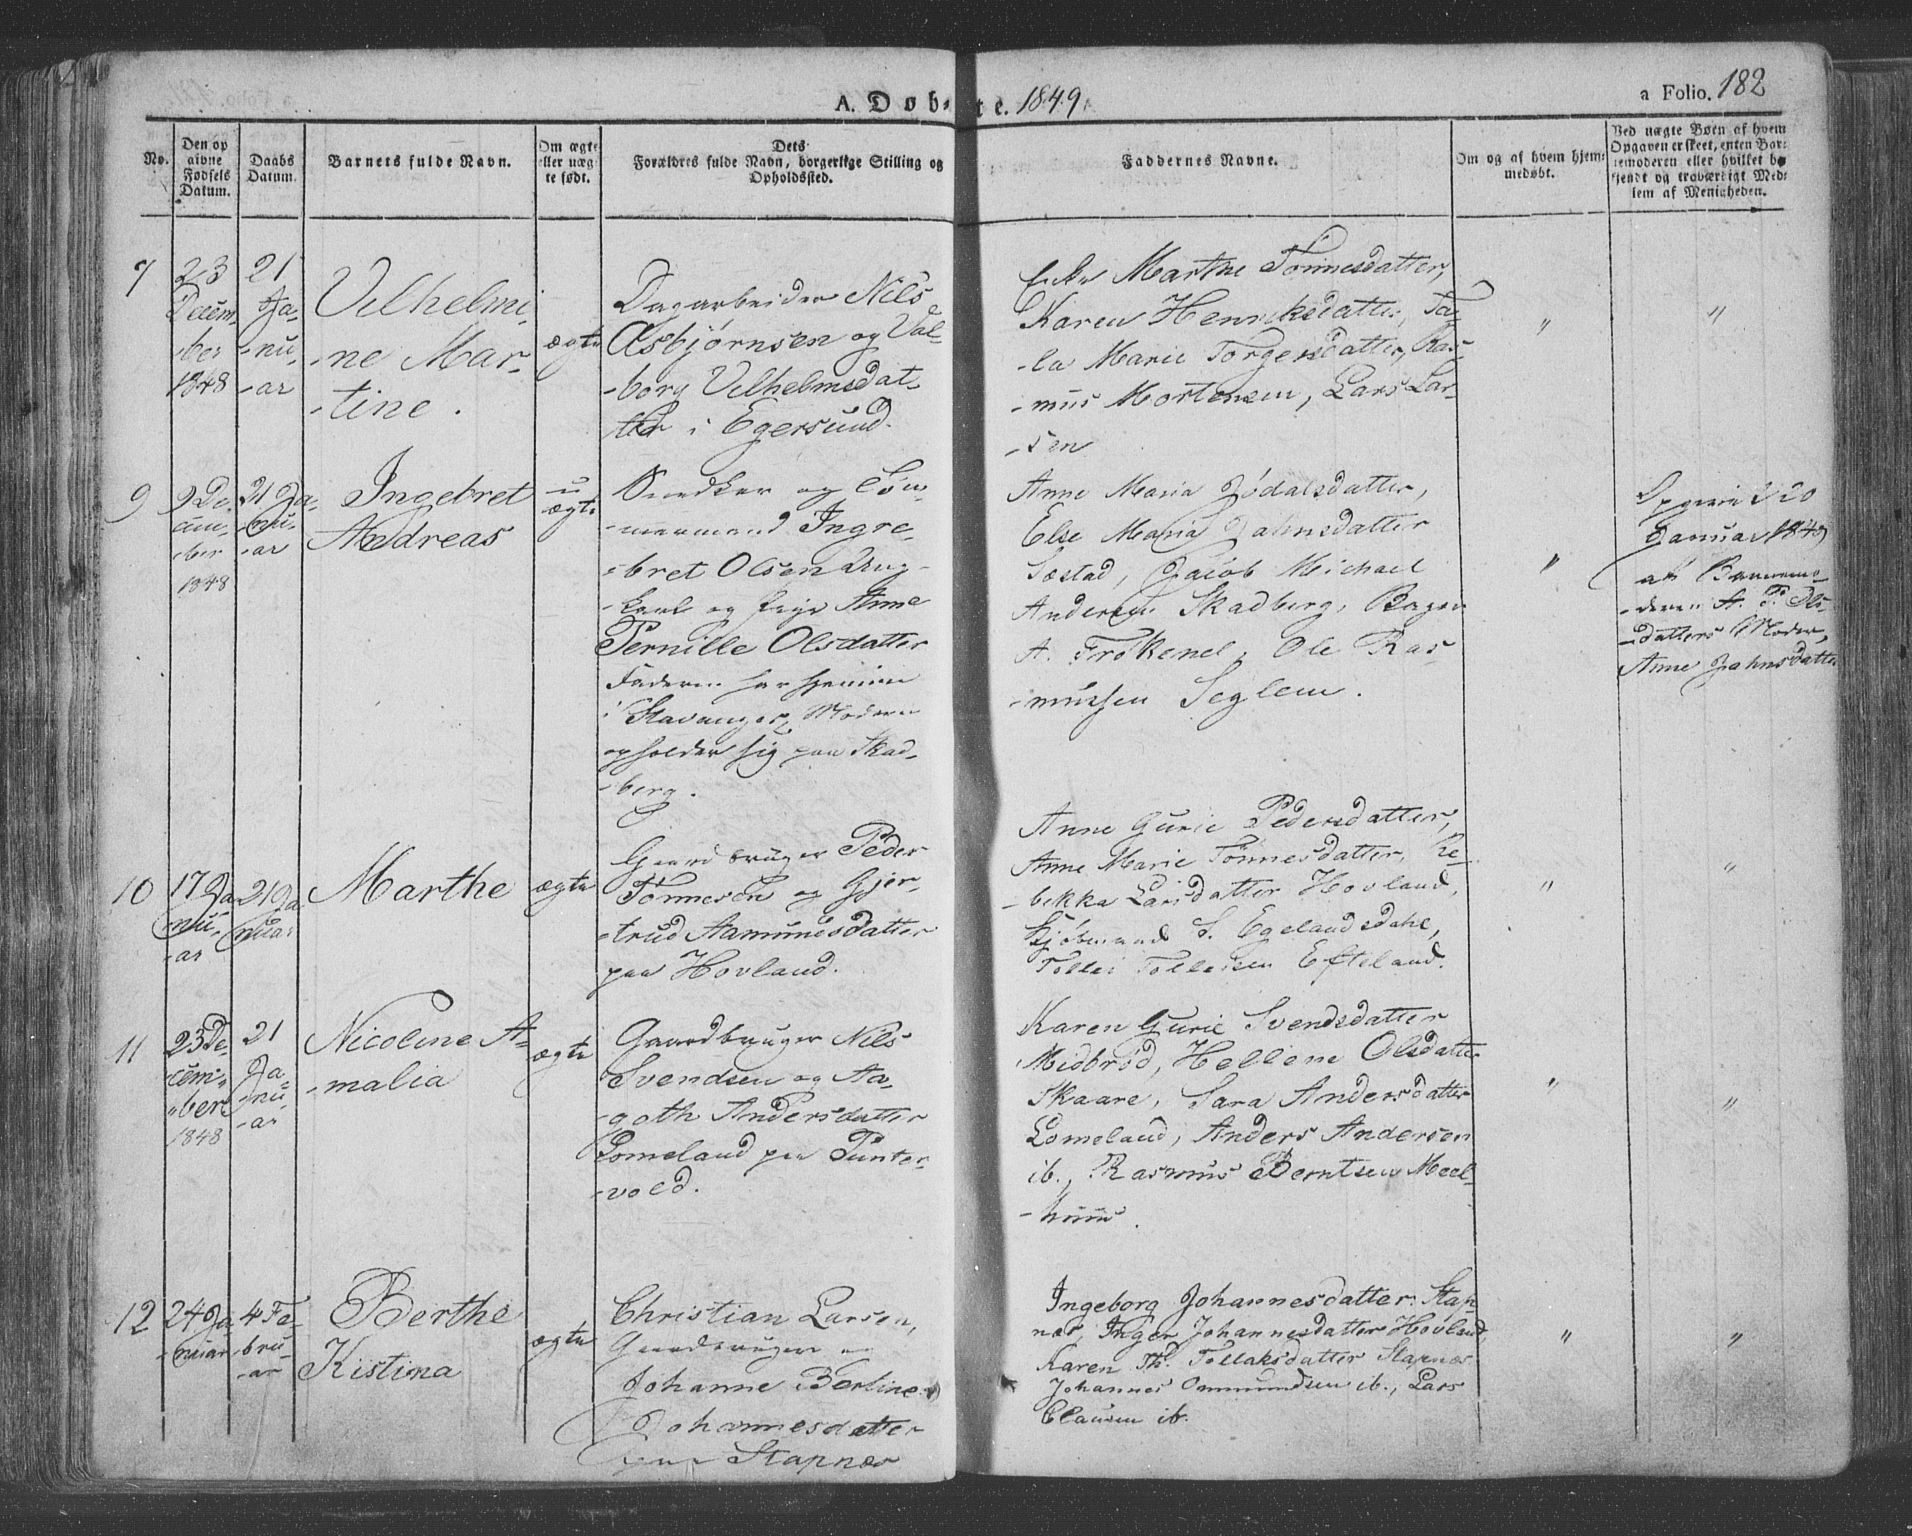 A. Døbte. 1849.
a Folio. 182
No.
Den op
givne
Fødsels
Datum.
Daabs
Datum.
Barnets fulde Navn.
Om ægte
eller uæg
te født.
Dets
Forældres fulde Navn, borgerlige Stilling og
Opholdssted.
Faddernes Navne.
Om og af hvem hjem-
medøbt.
Ved uægte Børn af hvem
Opgaven er skeet, enten Bar-
nemoderen eller hvilket be
kjendt og troværdigt Med-
lem af Menigheden.
7
23
Decem-
-ber
1848
21
Ja-
-nu-
-ar
Vilhelmi-
-ne Mar-
-tine.
ægte
Dagarbeider Nils
Asbjørnsen og Val-
-borg Vilhelmsdat-
ter i Egersund.
Enke Marthe Tønnesdatter,
Karen Henriksdatter, Ta-
-la Marie Torgersdatter, Ras-
-mus Mortensen, Lars Lar-
-sen
"
"
9
9 De-
cem-
-ber
1848
21 Ja-
-nu-
-ar
Ingebret
Andreas
u-
ægte
Snedker og Tøm-
-mermand Ingre-
-bret Olsen Ung-
-karl og Pige Anne
Pernille Olsdatter
Faderen har hjemme
i Stavanger, Moderen
opholder sig paa Skad-
-berg.
Anne Maria Jødalsdatter,
Else Maria Jahnsdatter
Sæstad, Jacob Michael
Andersen Skadberg, Bager
A. Frøkenel, Ole Ras-
-mussen Seglem.
"
Januar 1849
af Barnemo-
-deren A. P. Ols-
-datters Moder,
Anne Jahnsdatter
10
17 Ja-
-nu-
-ar
21 Ja-
nuar
Marthe
ægte
Gaardbruger Peder
Tønnesen og Gjer-
-trud Aamundsdatter
paa Hovland.
Anne Gurie Pedersdatter,
Anne Marie Tønnesdatter, Re-
-bekka Larsdatter Hovland,
Kjøbmand S. Egelandsdahl,
Tollei Tolleisen Efteland.
"
"
11
23 De-
-cem-
-ber
1848
21
Ja-
-nu-
-ar
Nicoline A-
-malia
ægte
Gaardbruger Nils
Svendsen og Aa-
-goth Andersdatter
Lomeland paa Punter-
-vold.
Karen Gurie Svendsdatter
Midbrød, Hellene Olsdatter
Skaare, Sara Andersdatter
Lomeland, Anders Andersen
ib., Rasmus Berntsen Meel-
-huus.
"
"
12
24 Ja-
-nuar
4 Fe-
-bru-
-ar
Berthe
Kistina
ægte
Christian Larsen,
Gaardbruger og
Johanne Bertine
Johannesdatter
paa Stapnæs
Ingeborg Johannesdatter Stap-
næs, Inger Johannesdatter Hovland,
Karen Th. Tollaksdatter Stapnæs
Johannes Ommundsen ib., Lars
Clausen ib.
"
"